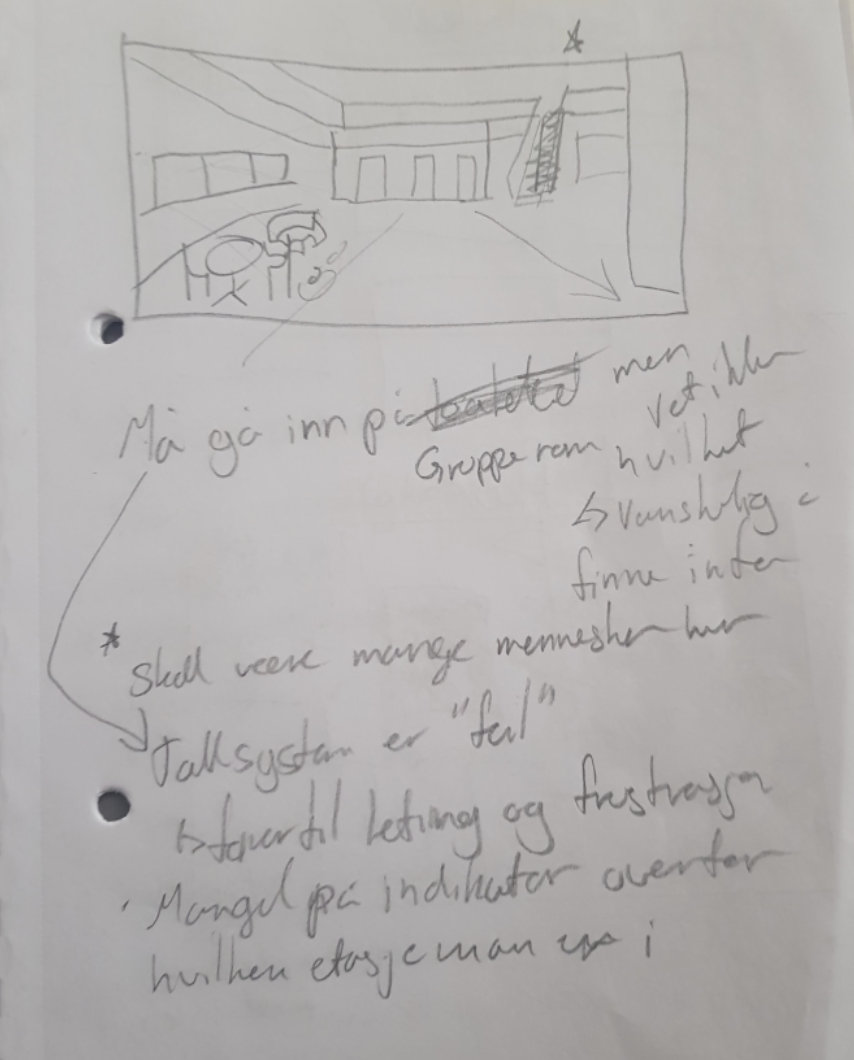 Må gå inn på toalettet men
Grupperom vet ikke
hvilket
↳ vanskelig å
finne infen
* Skal være mange mennesker her
Tallsystem er "feil"
↳ fører til leting og frustrasjon
· Mangel på indikator ovenfor
hvilken etasje man er i